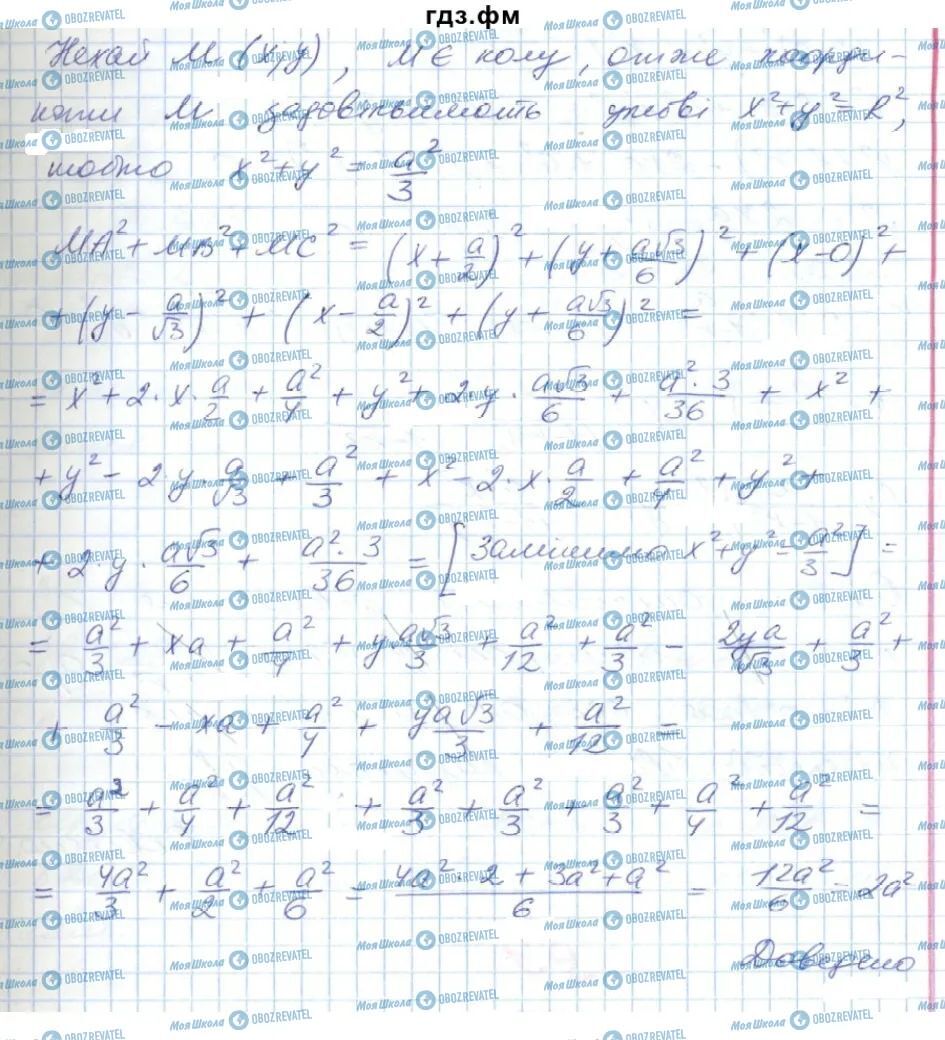 гдз.фм
Нехай M (x, y), M є колу, отже коорди-
нати M задовільняють умові x² + y² = R²,
тобто x² + y² = a²/3
MA² + MB² + MC² = (x + a/2)² + (y + a√3/6)² + (x - 0)² +
+ (y - a/√3)² + (x - a/2)² + (y + a√3/6)² =
= x² + 2·x·a/2 + a²/4 + y² + 2·y·a√3/6 + a²·3/36 + x² +
+ y² - 2·y·a/√3 + a²/3 + x² - 2·x·a/2 + a²/4 + y² +
+ 2·y·a√3/6 + a²·3/36 = [Замінимо x² + y² = a²/3] =
= a²/3 + xa + a²/4 + y a√3/3 + a²/12 + a²/3 - 2ya/√3 + a²/3 +
+ a²/3 - xa + a²/4 + ya√3/3 + a²/12 =
= a²/3 + a²/4 + a²/12 + a²/3 + a²/3 + a²/3 + a²/4 + a²/12 =
= 4a²/3 + a²/2 + a²/6 = (4a²·2 + 3a² + a²)/6 = 12a²/6 = 2a²
Доведено
МояШкола OBOZREVATEL